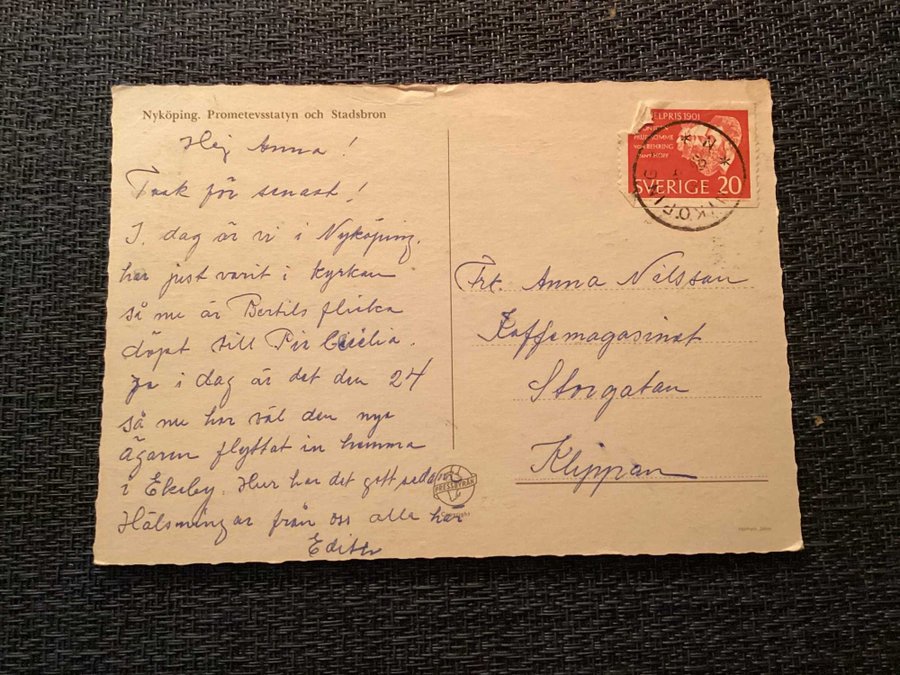 Nyköping. Prometevsstatyn och Stadsbron
Hej Anna!
Tack för senast!
I dag är vi i Nyköping.
har just varit i kyrkan
så nu är Bertils flicka
döpt till Pir Cecilia.
Ja i dag är det den 24
så nu har väl den nya
ägaren flyttat in hemma
i Ekeby. Hur har det gått sedan
Hälsningar från oss alla här
Edith
ELPRIS 1901
PRUDHOMME
VON BEHRING
VAN'T HOFF
SVERIGE 20
NYKÖPING
Frk. Anna Nilsson
Kaffemagasinet
Storgatan
Klippan
PRESSBYRÅN
Copyright